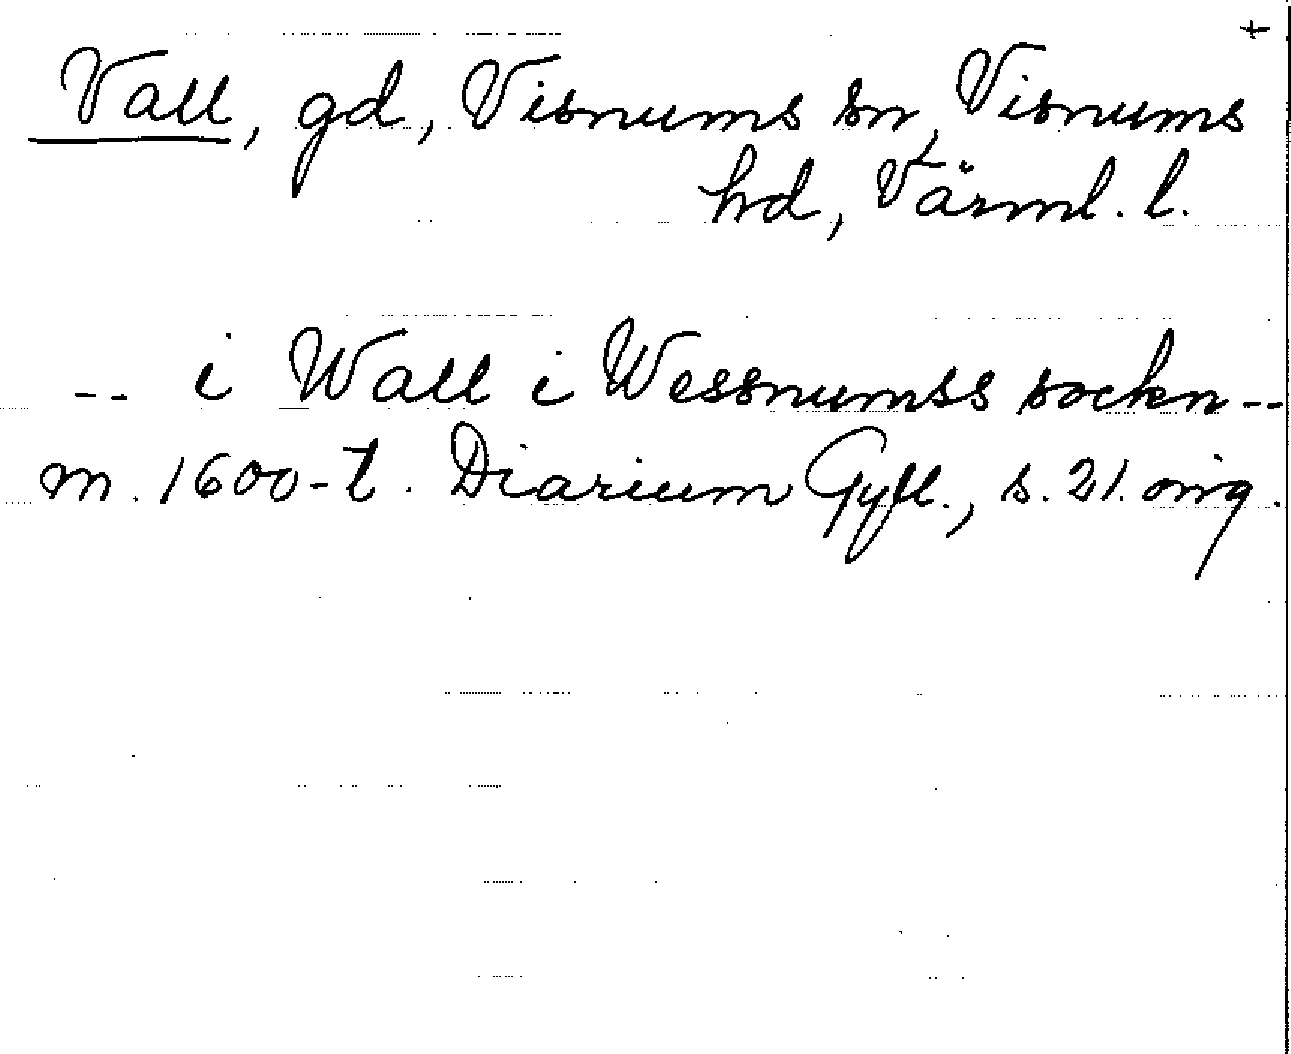 +
Vall, gd, Visnums sn, Visnums
hd, Värml. l.
-- i Wall i Wessnumss sockn --
m. 1600-t. Diarium Gyll., s. 21. orig.